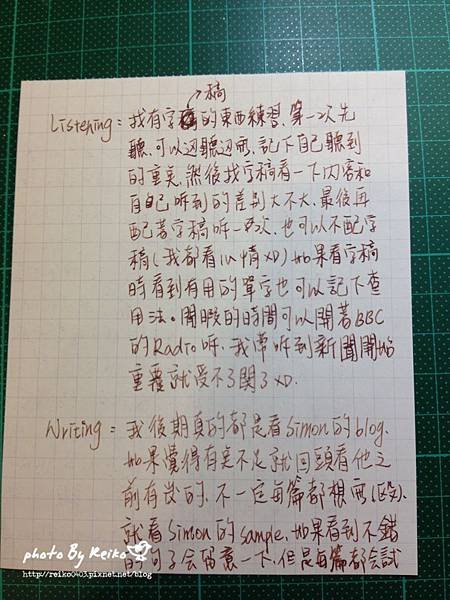 稿
Listening = 找有字稿的東西練習,第一次先
聽,可以邊聽邊寫,記下自己聽到
的重點,然後找字稿看一下內容和
自己听到的差別大不大,最後再
配著字稿听一次,也可以不配字
稿(我都看心情XD)如果看字稿
時看到有用的單字也可以記下查
用法。閒暇的時間可以開著BBC
的Radio听,我常听到新聞開始
重覆就受不了關了XD.
Writing = 我後期真的都是看Simon的blog.
如果覺得有点不足就回頭看他之
前有放的,不一定每篇都想寫
就看Simon的sample,如果看到不錯
的句子會留意一下,但是每篇都會試
photo By Reiko
http://reiko0403.pixnet.net/blog